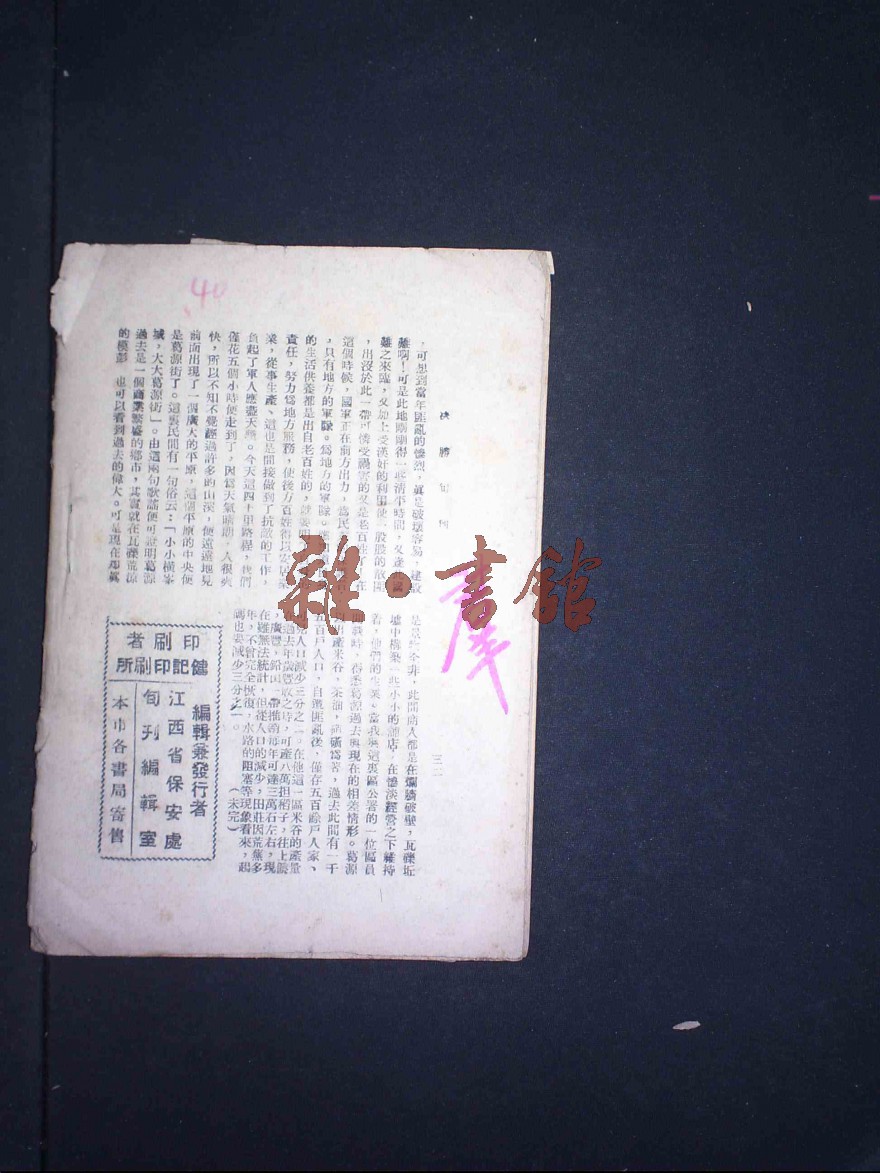 決勝旬刊
三二
,可想到當年匪亂的慘烈,眞是破壞容易,建設
難啊!可是此地剛剛得一些清平時間,又逢國
難之來臨,又加上受漢奸的利用使一股股的散匪
,出沒於此一帶可憐受禍害的又是老百姓了。在
這個時候,國軍正在前方出力,爲民
,只有地方的軍隊。爲地方的軍隊。
的生活供養都是出自老百姓的,就要明
責任,努力爲地方服務,使後方百姓得以安居樂
業,從事生產、這也是間接做到了抗敵的工作,
負起了軍人應盡天職。今天這四十里路程,我們
僅花五個小時便走到了,因爲天氣晴朗,人很爽
快,所以不知不覺經過許多的山溪,便遠遠地見
前面出現了一個廣大的平原,這個平原的中央便
是葛源街了。這裏民間有一句俗云:「小小橫峯
城,大大葛源街」。由這兩句歌謠便可證明葛源
過去是一個商業繁盛的鄉市,其實就在瓦礫荒凉
的模影 也可以看到過去的偉大。可是現在那眞
是是昨今非,此間商人都是在爛牆破壁,瓦礫坵
墟中構築一些小小的舖店,在慘淡經營之下維持
着,他們的生業。當我與這裏區公署的一位區員
談時,得悉葛源過去與現在的相差情形。葛源
出產米谷,茶油,硫磺爲著,過去此間有一千
五百戶人口,自遭匪亂後,僅存五百餘戶人家、
人口減少三分之一。在他這一區米谷的產量
在過去年歲豐收之時,可產八萬担稻子,往上饒
,廣豐,鉛山一帶推銷每年可達三萬石左右,現
在雖無法統計,但從人口的減少,田莊因荒蕪多
年,不曾完全恢復,水路的阻塞等現象看來,起
碼也要減少三分之一。 (未完)
編輯兼發行者
江西省保安處
旬刊編輯室
本市各書局寄售
印刷者
健記印刷所
40
雜·書館